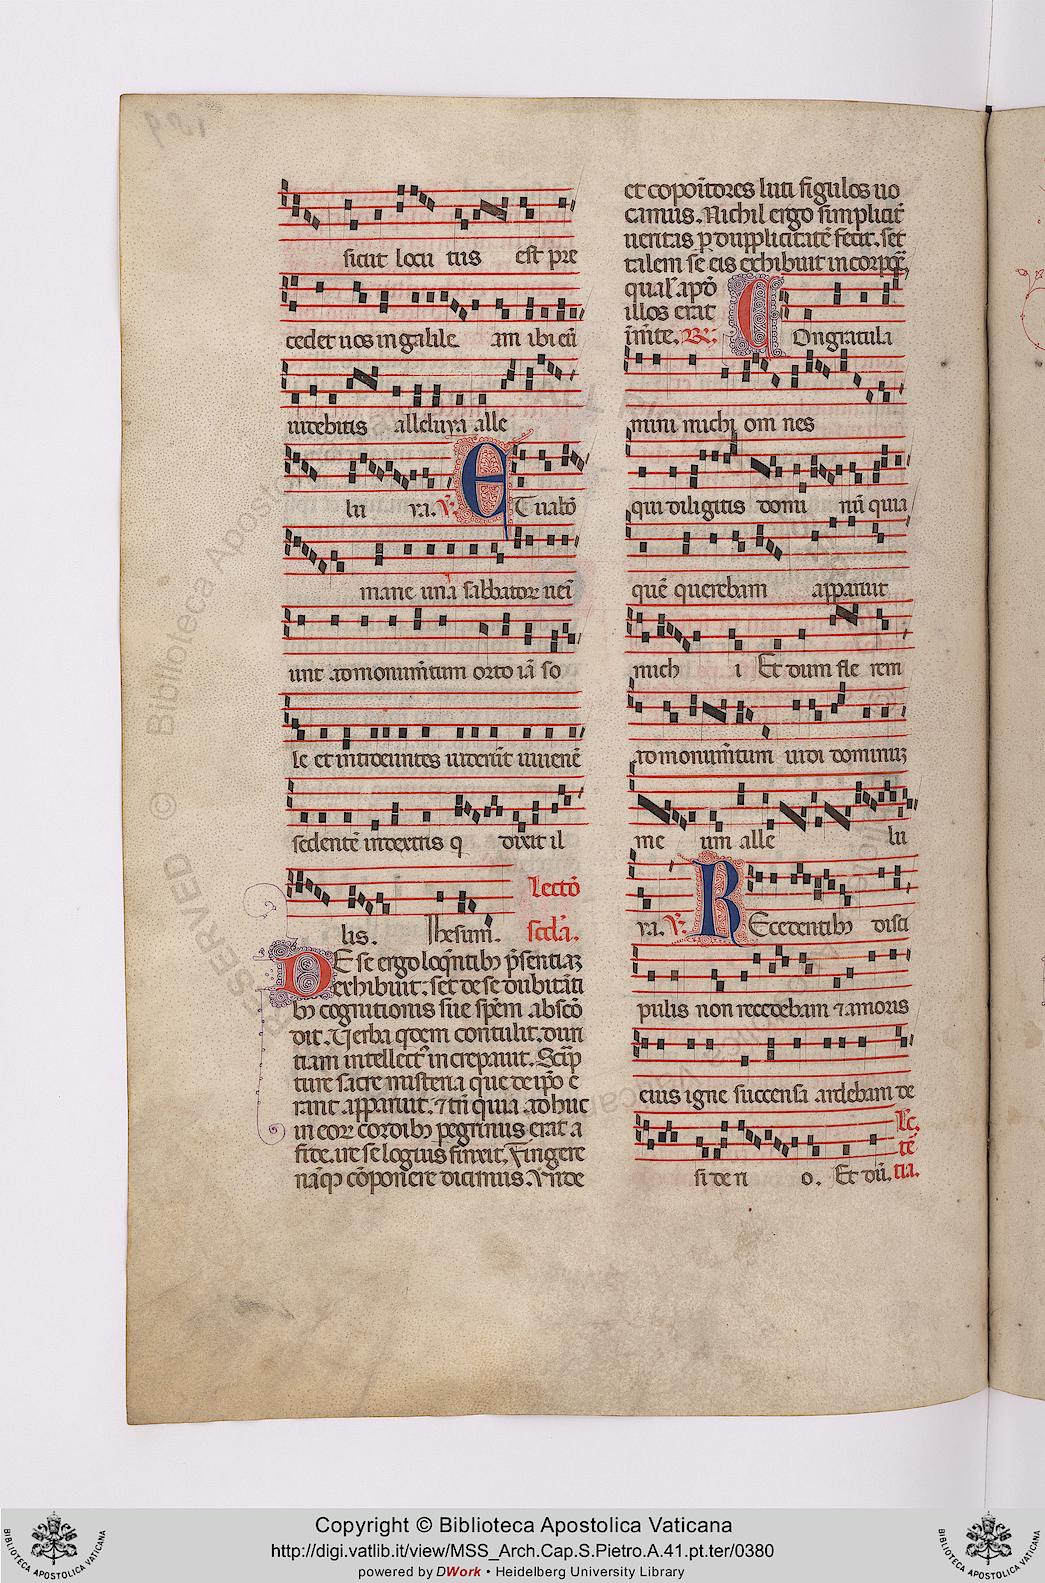 sicut locu tus est pre
cedet uos in galile am ibi eū
uidebitis alleluya alle
lu ya. V. ET ualđ
mane una sabbatoꝝ ueī
unt ad monumētum orto iā so
le et introeuntes uiderūt iuuenē
sedentē in dextris q dixit il
lis. Ihesum. Lectō
scđa.
DE se ergo loq̄ntibꝫ p̄sentiaꝫ
exhibuit: set de se dubitāti
bꝫ cognitionis sue spēm abscō
dit. Uerba qdem contulit. duri
tiam intellectꝰ increpauit. Sacre
ture sacre misteria que de ip̄o e
rant apparuit. ⁊ tn̄ quia adhuc
in eoꝝ cordibꝫ pegrinus erat a
fide. ire se longius finxit. Fingere
nāqꝫ cōponere dicimus. Vnde
et cōpoītores luti figulos uo
camus. Nichil ergo simplicit̄
ueritas p duplicitatē fecit. set
talem sē eis exhibuit in corpoꝛe,
qualꝭ apđ
illos erat
ī mēte. R. Congratula
mini michi om nes
qui diligitis domi nū quia
quē querebam apparuit
mich i Et dum fle rem
ad monumētum uidi dominuꝫ
me um alle lu
ya. V. Recedentibꝫ disci
pulis non recedebam ⁊ amoris
eius igne succensa ardebam de
si de ri o. Et dū. Lc̄.
tē
tia.
189
RESERVED © Biblioteca Apostolica Vaticana
BIBLIOTECA APOSTOLICA VATICANA
Copyright © Biblioteca Apostolica Vaticana
http://digi.vatlib.it/view/MSS_Arch.Cap.S.Pietro.A.41.pt.ter/0380
powered by DWork • Heidelberg University Library
BIBLIOTECA APOSTOLICA VATICANA